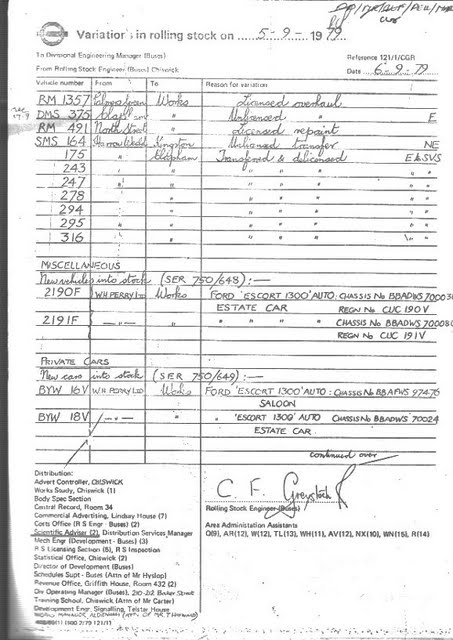 Variations in rolling stock on 5-9-1979
To Divisional Engineering Manager (Buses)
Reference 121/1/CGR
From Rolling Stock Engineer (Buses) Chiswick
Date 6-9-79
Vehicle number From To Reason for variation
RM 1357 Works Licensed overhaul
DMS 375 Clapham " Unlicensed " E
RM 491 North Street " Licensed repaint
SMS 164 Harrow Weald Kingston Unlicensed transfer NE
175 " Clapham Transferred & delicensed
243 " " " " " "
247 " " " " " "
278 " " " " " "
294 " " " " " "
295 " " " " " "
316 " " " " " "
MISCELLANEOUS
New vehicles into stock (SER 750/648):—
2190F W.H. PERRY LTD Works FORD 'ESCORT 1300' AUTO: CHASSIS No BBADWS 70003
ESTATE CAR REGN No CUC 190V
2191F —"— " " " " CHASSIS No BBADWS 70008
REGN No CUC 191V
PRIVATE CARS
New cars into stock (SER 750/649):—
BYW 16V W.H. PERRY LTD Works FORD 'ESCORT 1300' AUTO: CHASSIS No BBAFWS 97476
SALOON
BYW 18V —"— " " 'ESCORT 1300' AUTO CHASSIS No BBADWS 70024
ESTATE CAR
continued over
Distribution:
Advert Controller, CHISWICK
Works Study, Chiswick (1)
Body Spec Section
Central Record, Room 34
Commercial Advertising, Lindsay House (7)
Carts Office (R S Engr - Buses) (2)
Scientific Adviser (2), Distribution Services Manager
Mech Engr (Development - Buses) (3)
R S Licensing Section (5), R S Inspection
Statistical Office (2)
Director of Development (Buses)
Schedules Supt - Buses (Attn of Mr Hyslop)
Revenue Office, Griffith House, Room 432 (2)
Div Operating Manager (Buses), Baker Street
Training School, Chiswick (Attn of Mr Carter)
Development Engr, Signalling, Telstar House
C. F. Greystock
Rolling Stock Engineer (Buses)
Area Administation Assistants
Q(9), AR(12), W(12), TL(13), WH(11), AV(12), NX(10), WN(15), R(14)